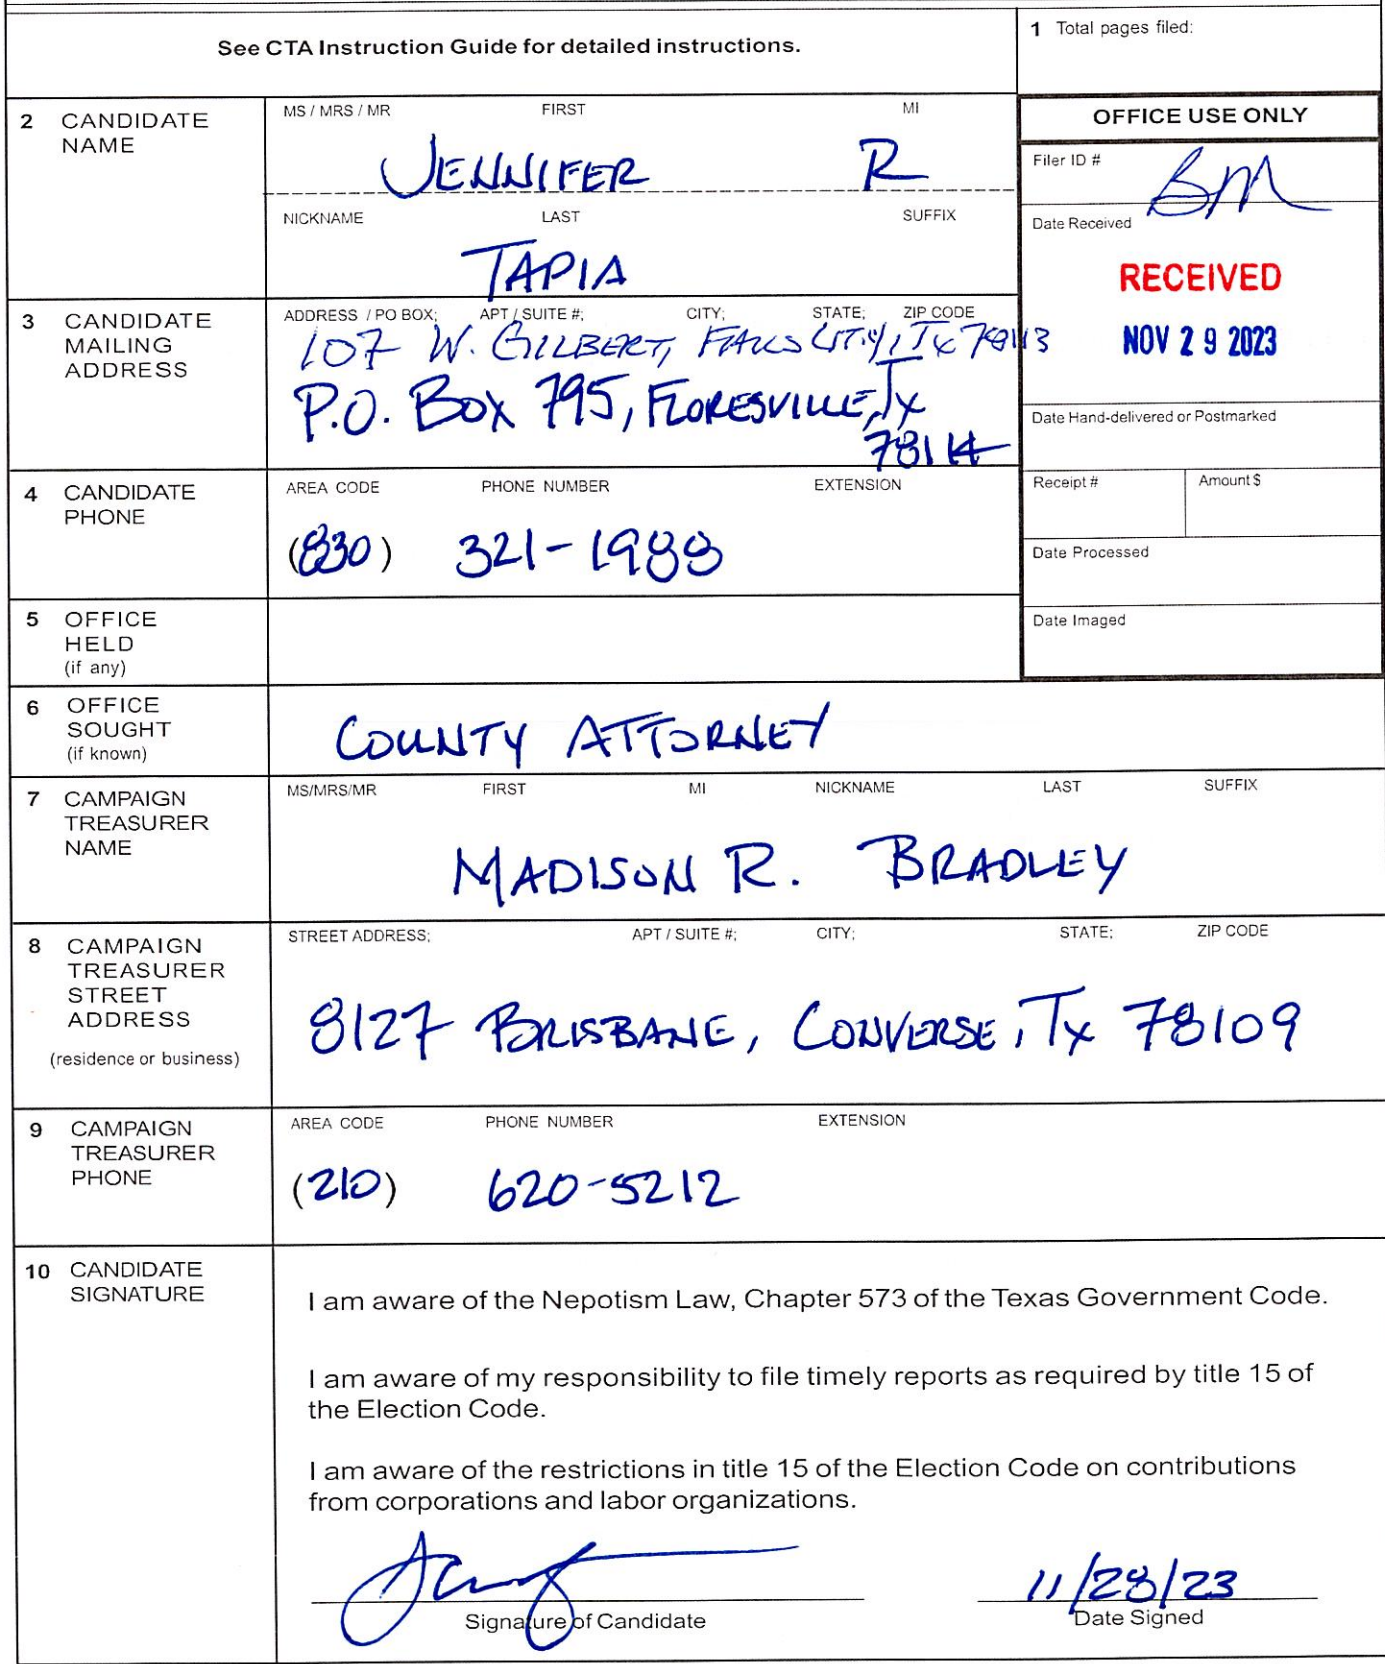 See CTA Instruction Guide for detailed instructions.
1 Total pages filed:
2 CANDIDATE NAME
MS / MRS / MR FIRST MI
JENNIFER R
NICKNAME LAST SUFFIX
TAPIA
OFFICE USE ONLY
Filer ID #
BM
Date Received
RECEIVED
NOV 29 2023
3 CANDIDATE MAILING ADDRESS
ADDRESS / PO BOX; APT / SUITE #; CITY; STATE; ZIP CODE
107 W. GILBERT, FALLS CITY, TX 78113
P.O. BOX 795, FLORESVILLE, TX
78114
Date Hand-delivered or Postmarked
4 CANDIDATE PHONE
AREA CODE PHONE NUMBER EXTENSION
(830) 321-1988
Receipt # Amount $
Date Processed
5 OFFICE HELD (if any)
Date Imaged
6 OFFICE SOUGHT (if known)
COUNTY ATTORNEY
7 CAMPAIGN TREASURER NAME
MS/MRS/MR FIRST MI NICKNAME LAST SUFFIX
MADISON R. BRADLEY
8 CAMPAIGN TREASURER STREET ADDRESS (residence or business)
STREET ADDRESS; APT / SUITE #; CITY; STATE; ZIP CODE
8127 BRISBANE, CONVERSE, TX 78109
9 CAMPAIGN TREASURER PHONE
AREA CODE PHONE NUMBER EXTENSION
(210) 620-5212
10 CANDIDATE SIGNATURE
I am aware of the Nepotism Law, Chapter 573 of the Texas Government Code.
I am aware of my responsibility to file timely reports as required by title 15 of
the Election Code.
I am aware of the restrictions in title 15 of the Election Code on contributions
from corporations and labor organizations.
11/28/23
Signature of Candidate Date Signed